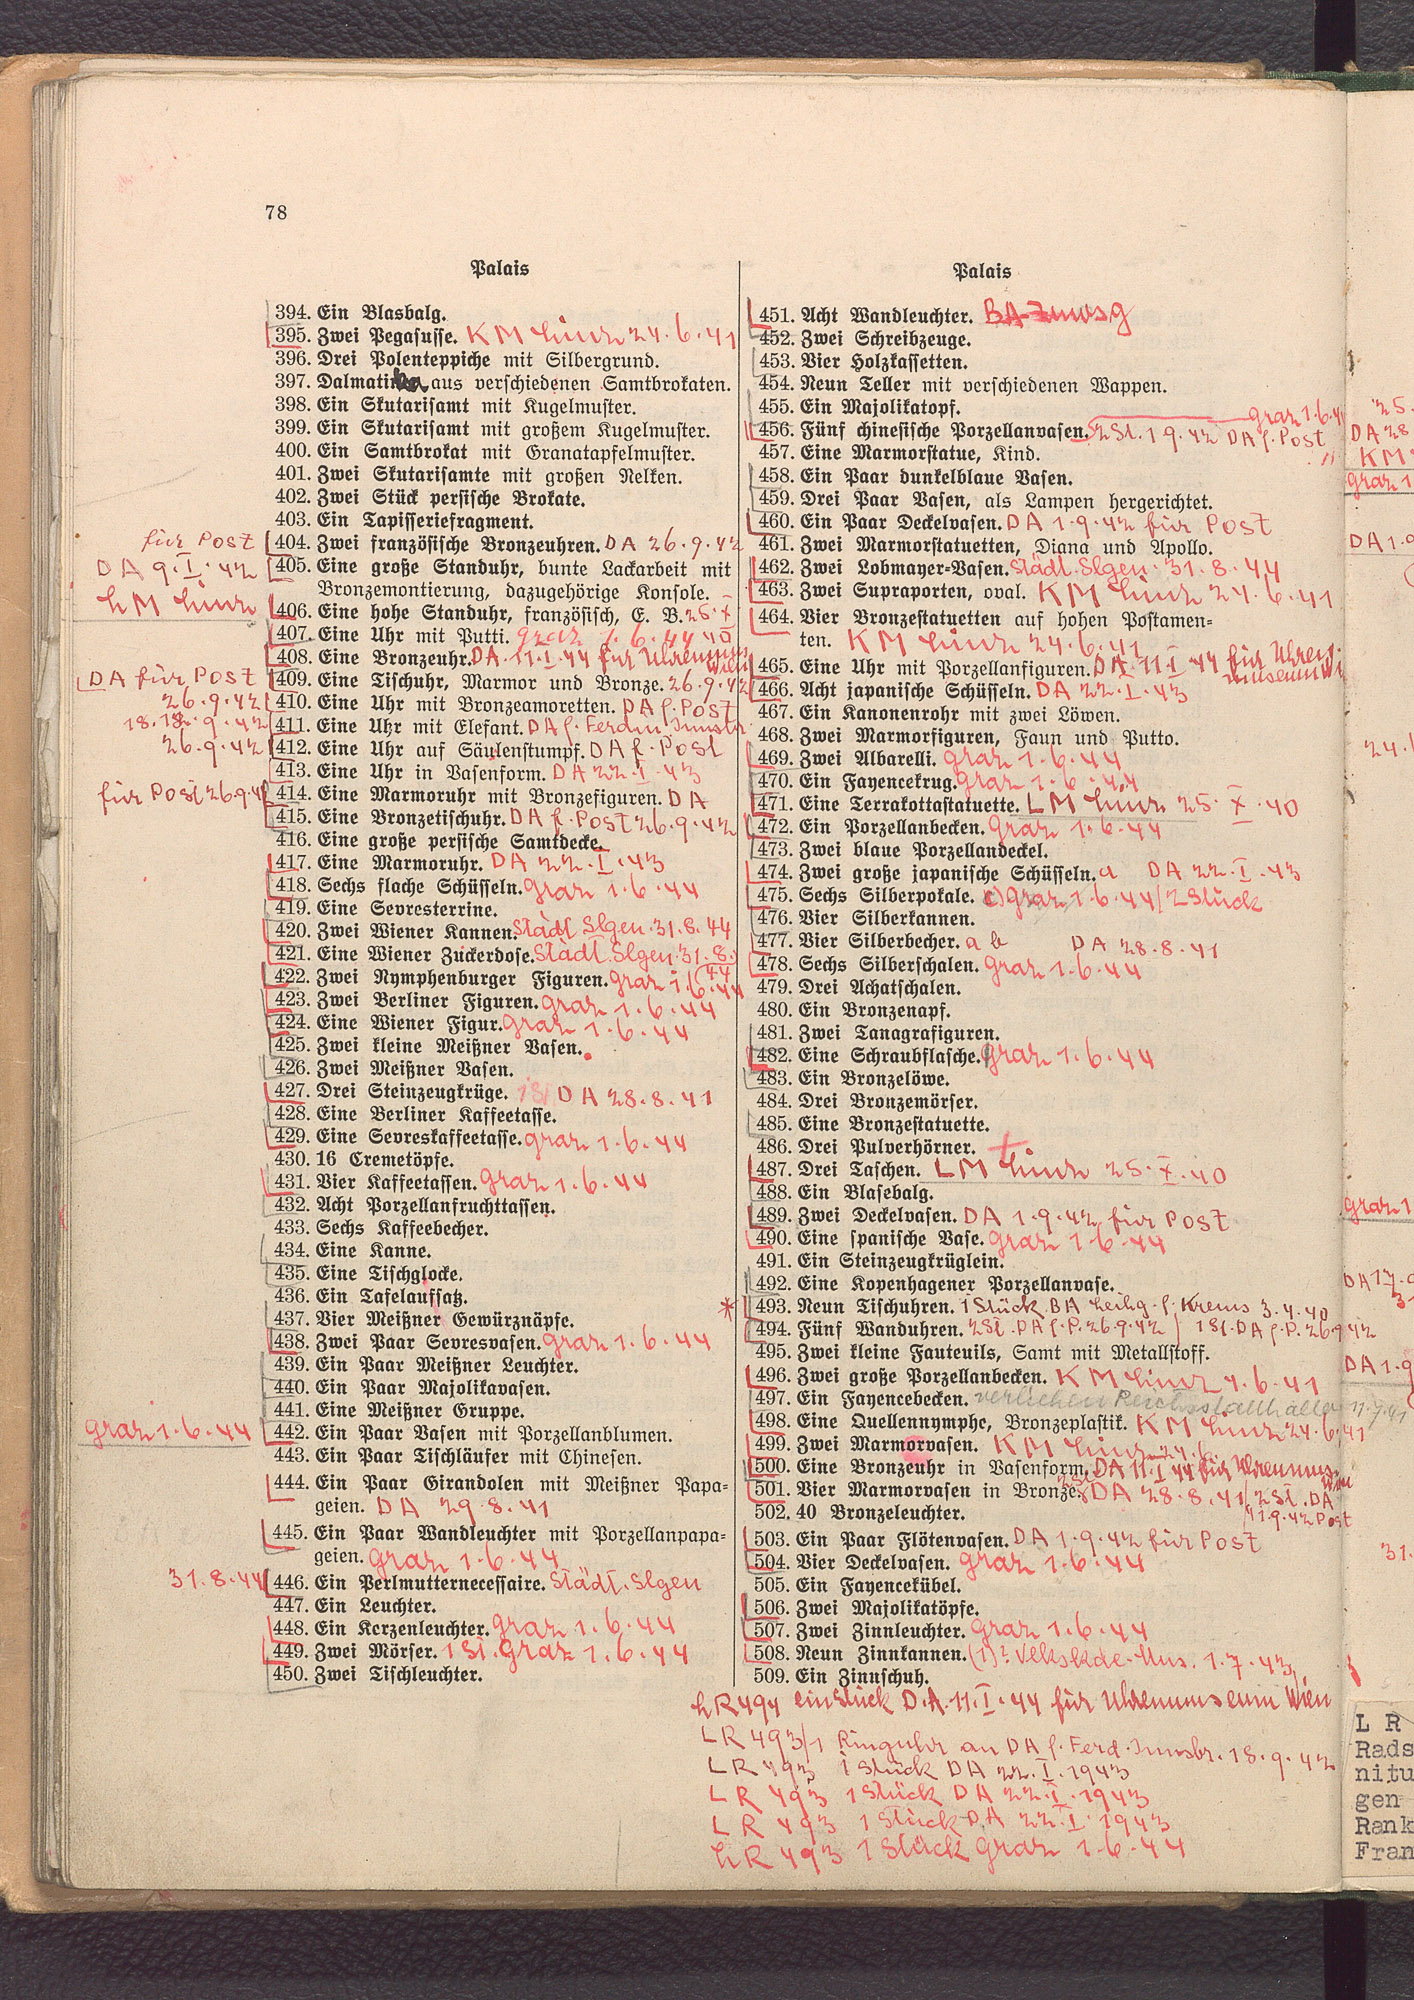 78
Palais
394. Ein Blasbalg.
395. Zwei Pegasusse. KM Linz 24.6.41
396. Drei Polenteppiche mit Silbergrund.
397. Dalmatika aus verschiedenen Samtbrokaten.
398. Ein Skutarisamt mit Kugelmuster.
399. Ein Skutarisamt mit großem Kugelmuster.
400. Ein Samtbrokat mit Granatapfelmuster.
401. Zwei Skutarisamte mit großen Nelken.
402. Zwei Stück persische Brokate.
403. Ein Tapisseriefragment.
für Post
404. Zwei französische Bronzeuhren. DA 26.9.42
DA 9.I.42
405. Eine große Standuhr, bunte Lackarbeit mit
Bronzemontierung, dazugehörige Konsole.
LM Linz
406. Eine hohe Standuhr, französisch, E. B. 25.X
40
407. Eine Uhr mit Putti. Graz 1.6.44
408. Eine Bronzeuhr. DA 11.I.44 für Uhrenmus
Wien
DA für Post
409. Eine Tischuhr, Marmor und Bronze. 26.9.42
26.9.42
410. Eine Uhr mit Bronzeamoretten. DA f. Post
18.9.42
411. Eine Uhr mit Elefant. DA f. Ferdin. Innsbr
26.9.42
412. Eine Uhr auf Säulenstumpf. DA f. Post
413. Eine Uhr in Vasenform. DA 22.I.43
für Post 26.9.42
414. Eine Marmoruhr mit Bronzefiguren. DA
415. Eine Bronzetischuhr. DA f. Post 26.9.42
416. Eine große persische Samtdecke.
417. Eine Marmoruhr. DA 22.I.43
418. Sechs flache Schüsseln. Graz 1.6.44
419. Eine Sevresterrine.
420. Zwei Wiener Kannen. Städt Slgen. 31.8.44
421. Eine Wiener Zuckerdose. Städt. Slgen. 31.8.
44
422. Zwei Nymphenburger Figuren. Graz 1.6.44
423. Zwei Berliner Figuren. Graz 1.6.44
424. Eine Wiener Figur. Graz 1.6.44
425. Zwei kleine Meißner Vasen.
426. Zwei Meißner Vasen.
427. Drei Steinzeugkrüge. 1St DA 28.8.41
428. Eine Berliner Kaffeetasse.
429. Eine Sevreskaffeetasse. Graz 1.6.44
430. 16 Cremetöpfe.
431. Vier Kaffeetassen. Graz 1.6.44
432. Acht Porzellanfruchttassen.
433. Sechs Kaffeebecher.
434. Eine Kanne.
435. Eine Tischglocke.
436. Ein Tafelaufsatz.
437. Vier Meißner Gewürznäpfe.
438. Zwei Paar Sevresvasen. Graz 1.6.44
439. Ein Paar Meißner Leuchter.
440. Ein Paar Majolikavasen.
441. Eine Meißner Gruppe.
Graz 1.6.44
442. Ein Paar Vasen mit Porzellanblumen.
443. Ein Paar Tischläufer mit Chinesen.
444. Ein Paar Girandolen mit Meißner Papa-
geien. DA 29.8.41
445. Ein Paar Wandleuchter mit Porzellanpapa-
geien. Graz 1.6.44
31.8.44
446. Ein Perlmutternecessaire. Städt. Slgen
447. Ein Leuchter.
448. Ein Kerzenleuchter. Graz 1.6.44
449. Zwei Mörser. 1 St. Graz 1.6.44
450. Zwei Tischleuchter.
Palais
451. Acht Wandleuchter.
452. Zwei Schreibzeuge.
453. Vier Holzkassetten.
454. Neun Teller mit verschiedenen Wappen.
455. Ein Majolikatopf.
Graz 1.6.4
456. Fünf chinesische Porzellanvasen. 2St. 1 9.42 DA f. Post
457. Eine Marmorstatue, Kind.
458. Ein Paar dunkelblaue Vasen.
459. Drei Paar Vasen, als Lampen hergerichtet.
460. Ein Paar Deckelvasen. DA 1.9.42 für Post
461. Zwei Marmorstatuetten, Diana und Apollo.
462. Zwei Lobmayer-Vasen. Städt. Slgen 31.8.44
463. Zwei Supraporten, oval. KM Linz 24.6.41
464. Vier Bronzestatuetten auf hohen Postamen-
ten. KM Linz 24.6.41
465. Eine Uhr mit Porzellanfiguren. DA 11 I 44 für Uhren-
museum Wi
466. Acht japanische Schüsseln. DA 22.I.43
467. Ein Kanonenrohr mit zwei Löwen.
468. Zwei Marmorfiguren, Faun und Putto.
469. Zwei Albarelli. Graz 1.6.44
470. Ein Fayencekrug. Graz 1.6.44
471. Eine Terrakottastatuette. LM Linz 25.X.40
472. Ein Porzellanbecken. Graz 1.6.44
473. Zwei blaue Porzellandeckel.
474. Zwei große japanische Schüsseln. a DA 22.I.43
475. Sechs Silberpokale. c) Graz 1.6.44/2 Stück
476. Vier Silberkannen.
477. Vier Silberbecher. a b DA 28.8.41
478. Sechs Silberschalen. Graz 1.6.44
479. Drei Achatschalen.
480. Ein Bronzenapf.
481. Zwei Tanagrafiguren.
482. Eine Schraubflasche. Graz 1.6.44
483. Ein Bronzelöwe.
484. Drei Bronzemörser.
485. Eine Bronzestatuette.
486. Drei Pulverhörner.
487. Drei Taschen. LM Linz 25.X.40
488. Ein Blasebalg.
489. Zwei Deckelvasen. DA 1.9.42 für Post
490. Eine spanische Vase. Graz 1.6.44
491. Ein Steinzeugkrüglein.
492. Eine Kopenhagener Porzellanvase.
* 493. Neun Tischuhren. 1 Stück BA Leihg. f. Krems 3.4.40
494. Fünf Wanduhren. 2St. DA f. P. 26.9.42 / 1St. DA f. P. 26.9.42
495. Zwei kleine Fauteuils, Samt mit Metallstoff.
496. Zwei große Porzellanbecken. KM Linz 4.6.41
497. Ein Fayencebecken. verliehen Reichsstatthalter 11.9.41
498. Eine Quellennymphe, Bronzeplastik. KM Linz 24.6.41
499. Zwei Marmorvasen. KM Linz 24.6.
500. Eine Bronzeuhr in Vasenform. DA 11.I 44 für Uhrenmus.
Wien
501. Vier Marmorvasen in Bronze. 2St DA 28.8.41/2St. DA
1.9.42 Post
502. 40 Bronzeleuchter.
503. Ein Paar Flötenvasen. DA 1.9.42 für Post
504. Vier Deckelvasen. Graz 1.6.44
505. Ein Fayencekübel.
506. Zwei Majolikatöpfe.
507. Zwei Zinnleuchter. Graz 1.6.44
508. Neun Zinnkannen. (1) Volkskde-Mus. 1.7.43
509. Ein Zinnschuh.
LR 494 ein Stück D.A. 11.I.44 für Uhrenmuseum Wien
LR 493/1 Ringuhr an DA f. Ferd. Innsbr. 18.9.42
LR 493 1 Stück DA 22.I.1943
LR 493 1 Stück DA 22.I.1943
LR 493 1 Stück DA 22.I.1943
LR 493 1 Stück Graz 1.6.44
25.
DA 28
KM
Graz 1
DA 1.9
24.
Graz 1
DA 17.
31
DA 1.9
31.
L R
Rads
nitu
gen
Rank
Fran